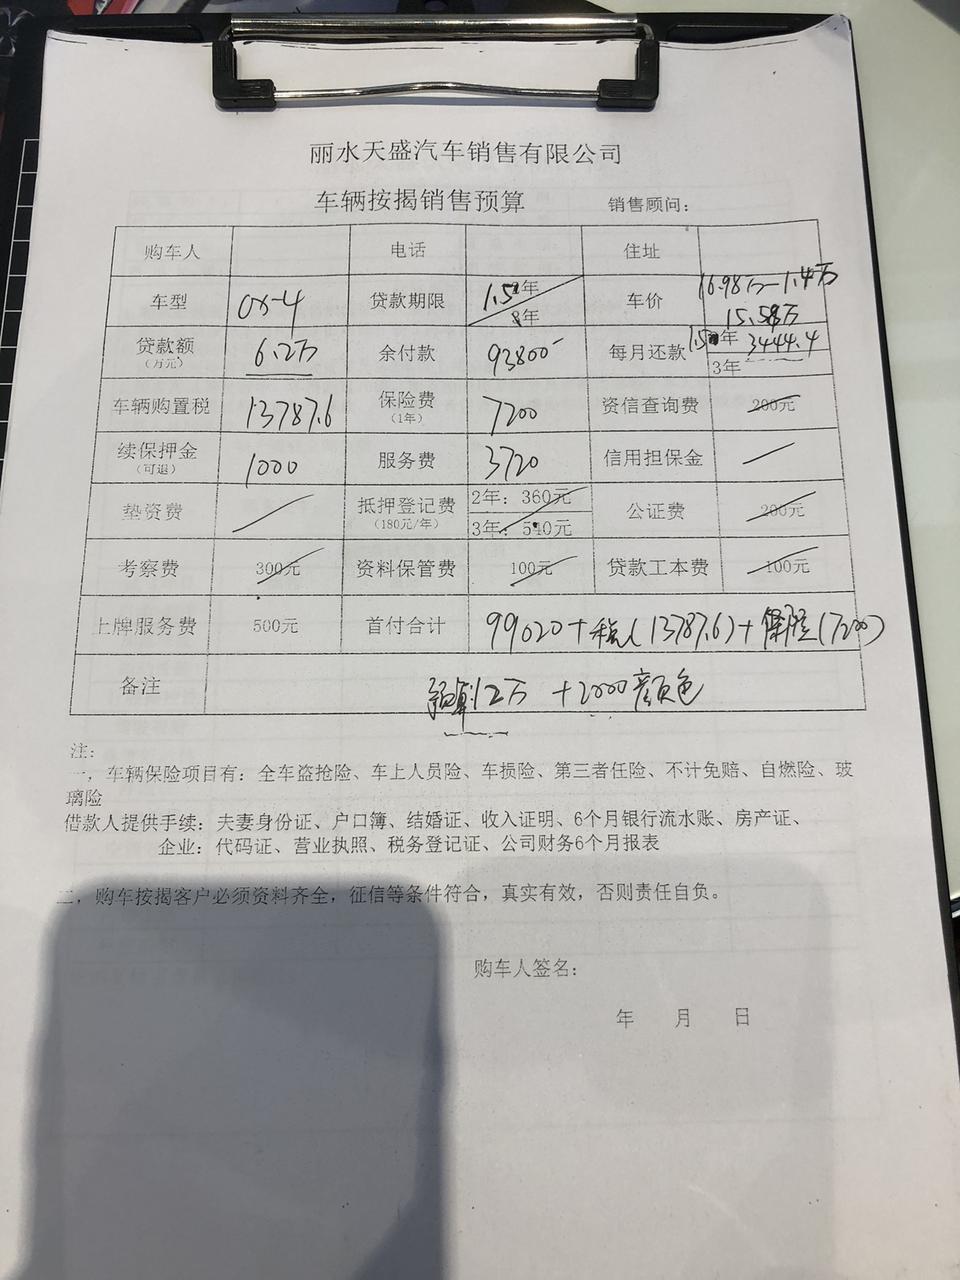 丽水天盛汽车销售有限公司
车辆按揭销售预算 销售顾问：
购车人 电话 住址
车型 CX-4 贷款期限 1.5年 3年 车价 16.98万-1.4万 15.58万
贷款额（万元） 6.2万 余付款 93800 每月还款 1.5年 3444.4 3年
车辆购置税 13787.6 保险费（1年） 7200 资信查询费 200元
续保押金（可退） 1000 服务费 3720 信用担保金
垫资费 抵押登记费（180元/年） 2年：360元 3年：540元 公证费 200元
考察费 300元 资料保管费 100元 贷款工本费 100元
上牌服务费 500元 首付合计 99020+税(13787.6)+保险(7200)
备注 预算12万 +2000颜色
注：
一，车辆保险项目有：全车盗抢险、车上人员险、车损险、第三者任险、不计免赔、自燃险、玻
璃险
借款人提供手续：夫妻身份证、户口簿、结婚证、收入证明、6个月银行流水账、房产证、
企业：代码证、营业执照、税务登记证、公司财务6个月报表
二，购车按揭客户必须资料齐全，征信等条件符合，真实有效，否则责任自负。
购车人签名：
年 月 日